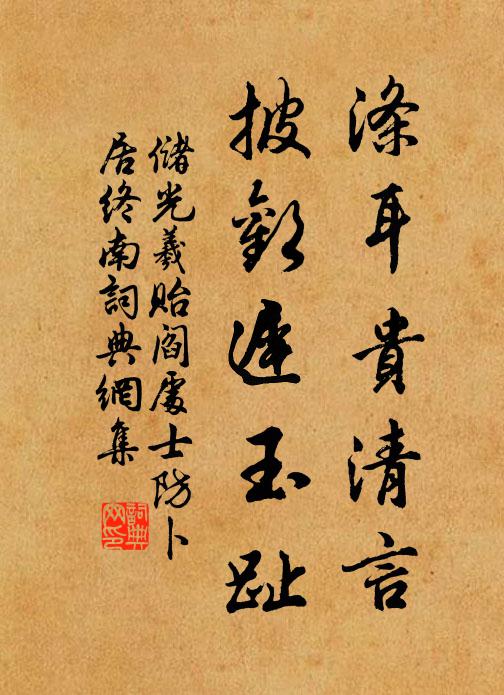 滌耳貴清言
披歡遲玉趾
儲光羲貽閻處士防卜
居終南詞典網集
詞典
网印